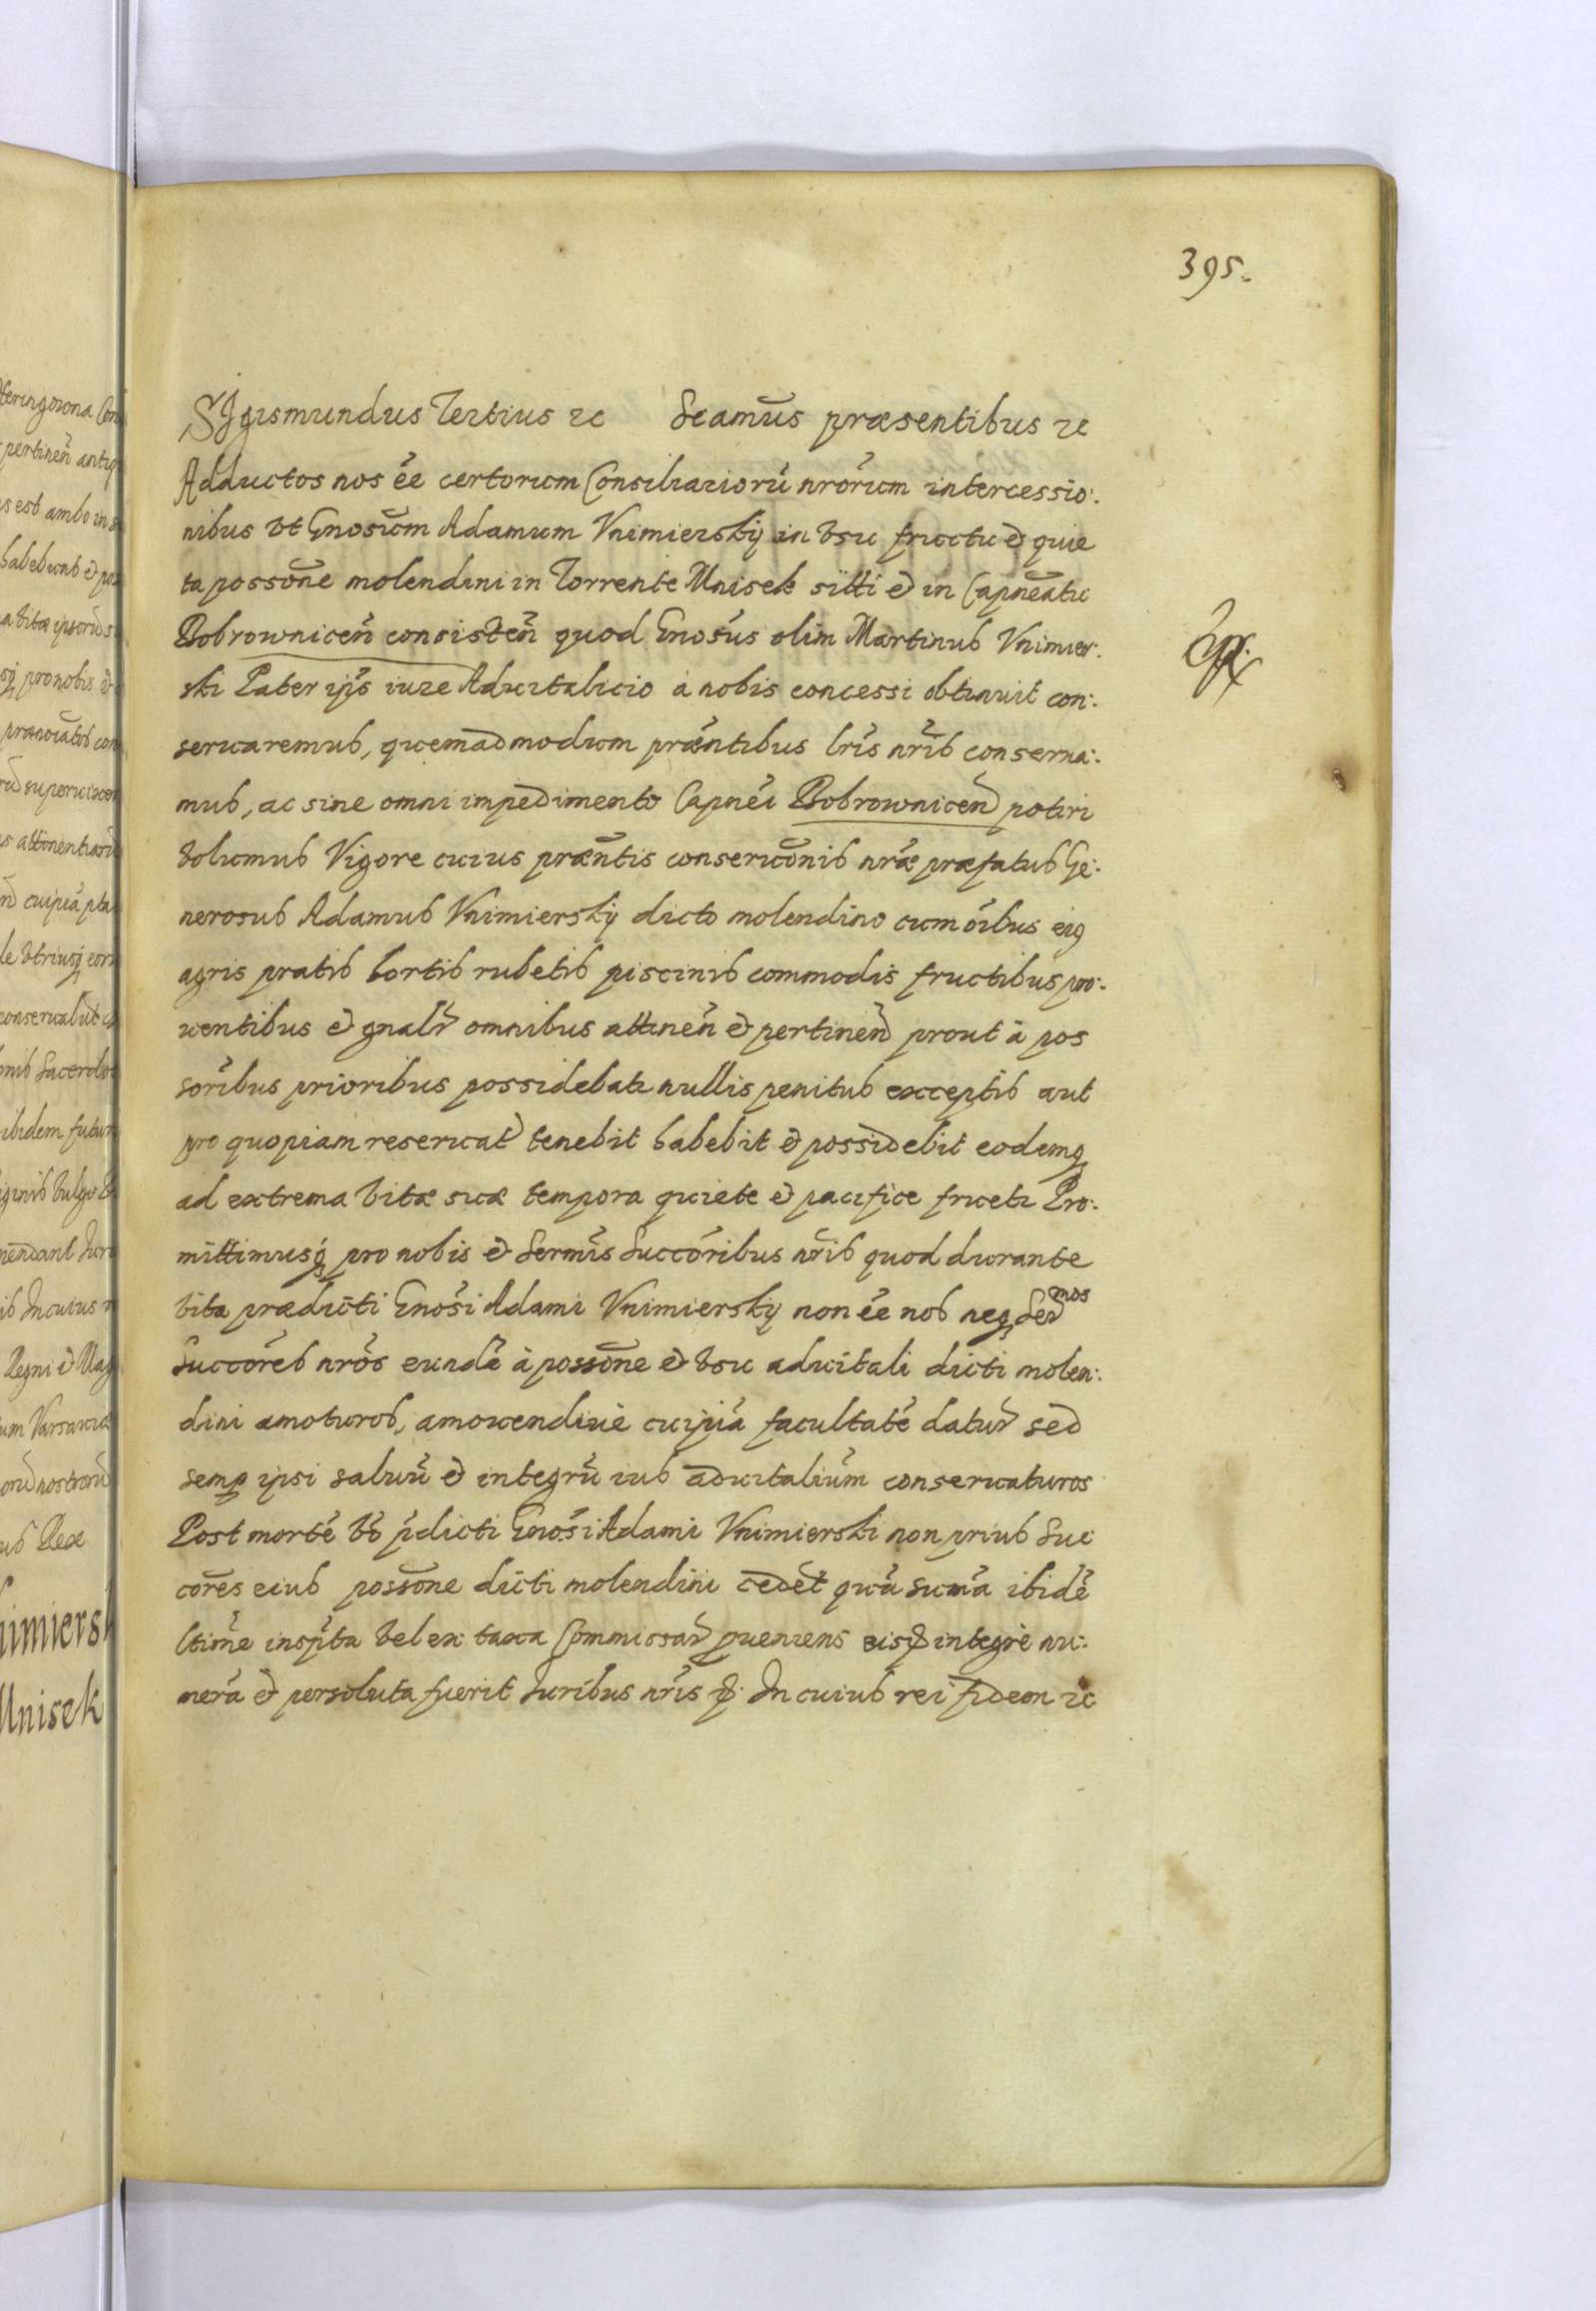 395.
SIgismundus Tertius &c Scamus præsentibus &c
Adductos nos ée certorum Consiliariorū nrōrum intercessio:
nibus vt Gnosum Adamum Vnimiersky in vsu fructu et quie
ta possōne molendini in Torrente Mnisek sitti et in Capneātu
Bobrownicen̄ consisten̄ quod Gnosus olim Martinus Vnimier:
ski Pater ips iure Aduitalicio à nobis concessi obtinuit con:
seruaremus, quemadmodum præntibus lris nris conserua:
mus, ac sine omni impedimento Capnei Bobrownicen potiri
volumus Vigore cuius præntis conseruōnis nræ præfatus Ge:
nerosus Adamus Vnimiersky dicto molendino cum oibus eiq
agris pratis hortis rubetis piscinis commodis fructibus pro:
uentibus et gnalr omnibus attinen̄ et pertinen prout à pos
soribus prioribus possidebatr nullis penitus exceptis aut
pro quopiam reseruat tenebit habebit et possidebit eodemq
ad extrema vitæ suæ tempora quiete et pacifice fruetr Pro:
mittimusq pro nobis et Sermis Succoribus nris quod durante
vita prædicti Gnosi Adami Vnimiersky non ée nos neq Ser mos
Succores nros eundē à possōne et vsu aduitali dicti molen:
dini amoturos, amouendiue cuipiā facultatē daturos sed
semp ipsi saluū et integrū ius aduitalium conseruaturos
Post mortē vo pdicti Gnosi Adami Vnimierski non prius Suc
cores eius possōne dicti molendini cedet quā sumā ibidē
ltime inspta vel ex taxa Commissar pueniens eisd integrè nu:
merā et persoluta fuerit Iuribus nris In cuius rei fidem &c